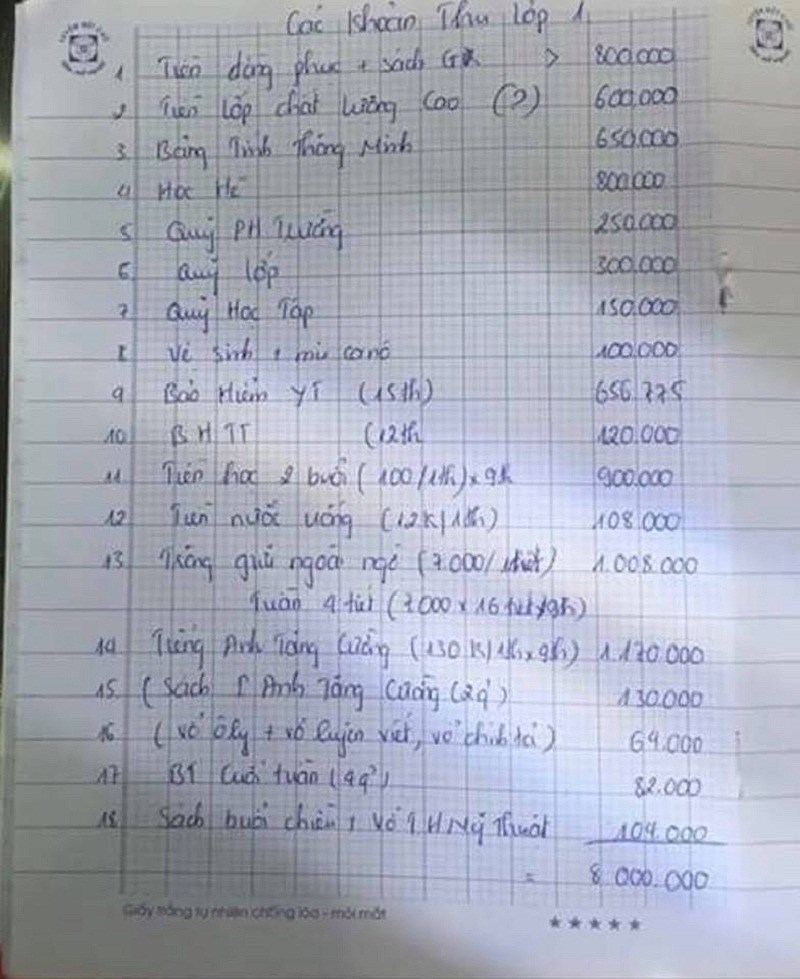 Các Khoản Thu Lớp 1
1 Tiền đồng phục + sách GK > 800.000
2 Tiền Lớp chất lượng cao (?) 600.000
3 Bảng Tính Thông Minh 650.000
4 Học Hè 800.000
5 Quỹ PH Trường 250.000
6 Quỹ lớp 300.000
7 Quỹ Học Tập 150.000
8 Vệ sinh 100.000
9 Bảo Hiểm YT (15th) 656.775
10 BHTT (12th 120.000
11 Tiền học 2 buổi (100/1th) x 9th 900.000
12 Tiền nước uống (12K/1th) 108.000
13 Trông giữ ngoài ngỏ (7.000/1tiết) 1.008.000
Tuần 4 tiết (7.000 x 16 tiết x 9th)
14 Tiếng Anh Tăng Cường (130K/1th x 9th) 1.170.000
15 (Sách T Anh Tăng Cường (2q) 130.000
16 (vở ôly + vở luyện viết, vở chính tả) 69.000
17 BT Cuối tuần (4q) 82.000
18 Sách buổi chiều, Vở TH Mỹ Thuật 104.000
= 8.000.000
Giấy trắng tự nhiên chống lóa - mỏi mắt
★★★★★